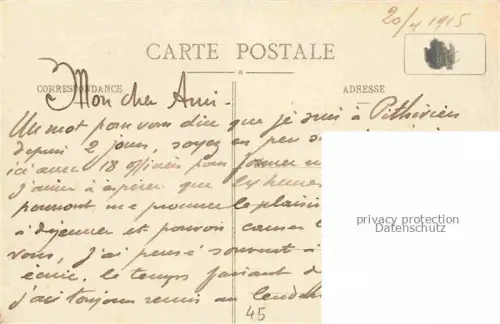 20/4 1915
CARTE POSTALE
CORRESPONDANCE
ADRESSE
Mon cher Ami -
Un mot pour vous dire que je suis à Pithiviers
depuis 2 jours, soyez en peu
ici avec 18 officiers pour former
J'aime à espérer que les heures
pourront me procurer le plaisir
à déjeuner et pouvoir causer
vous, j'ai pensé souvent à
écrire, le temps faisant
j'ai toujours remis au lendem
privacy protection
Datenschutz
45